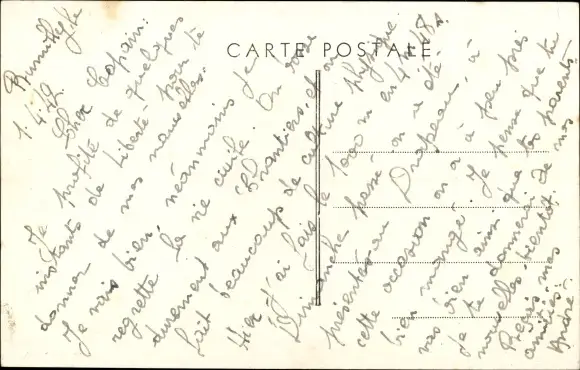 CARTE POSTALE
1.4.49
Cher Copain:
Je profite de quelques
instants de liberté pour te
donner de mes nouvelles.
Je vais bien, néanmoins je
regrette la vie civile. On
durement aux Chantiers, et on
fait beaucoup de culture Physique
Hier j'ai fais le 1000 m en 4' 48".
Dimanche passé on a été
présentés au Drapeau, à
cette occasion on a à peu près
bien mangé. Je pense que tu
vas bien ainsi que tes parents.
Je te donnerai de mes
nouvelles bientôt.
Reçois mes
amitiés.
André.